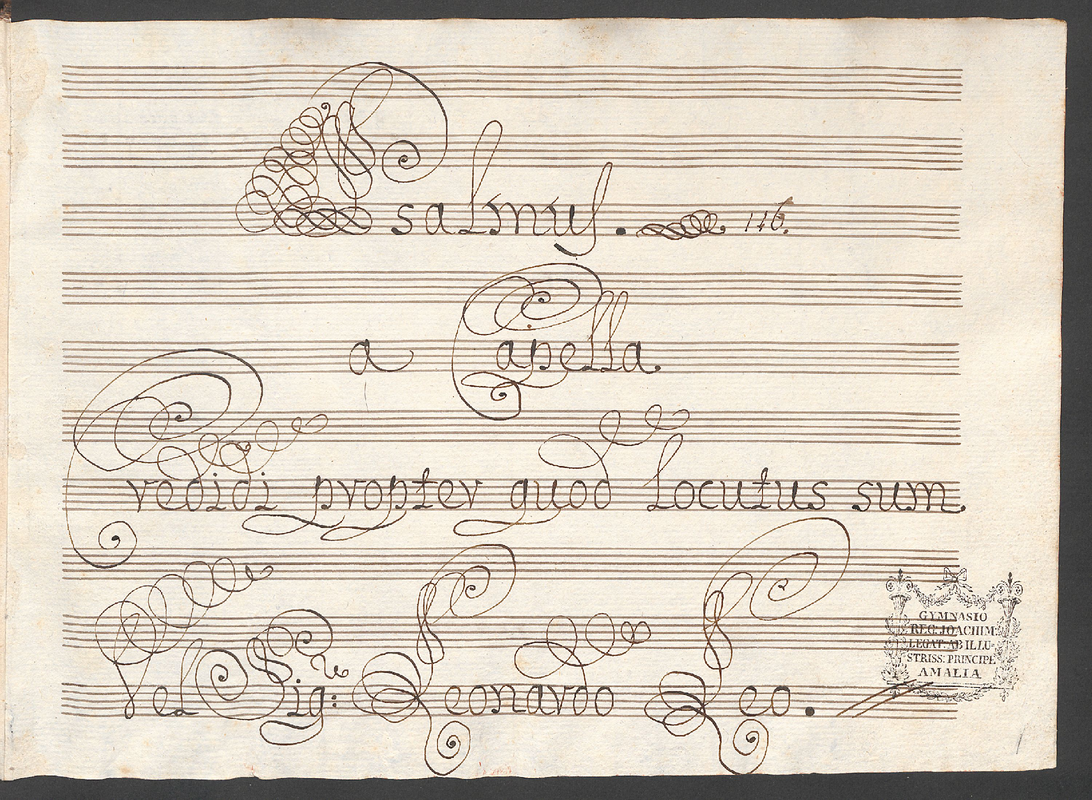 Psalmus. 116.
a Capella.
Credidi propter quod Locutus sum.
Del Sig: Leonardo Leo.
GYMNASIO
REG: JOACHIM:
LEGAT: AB ILLU-
STRISS: PRINCIPE
AMALIA